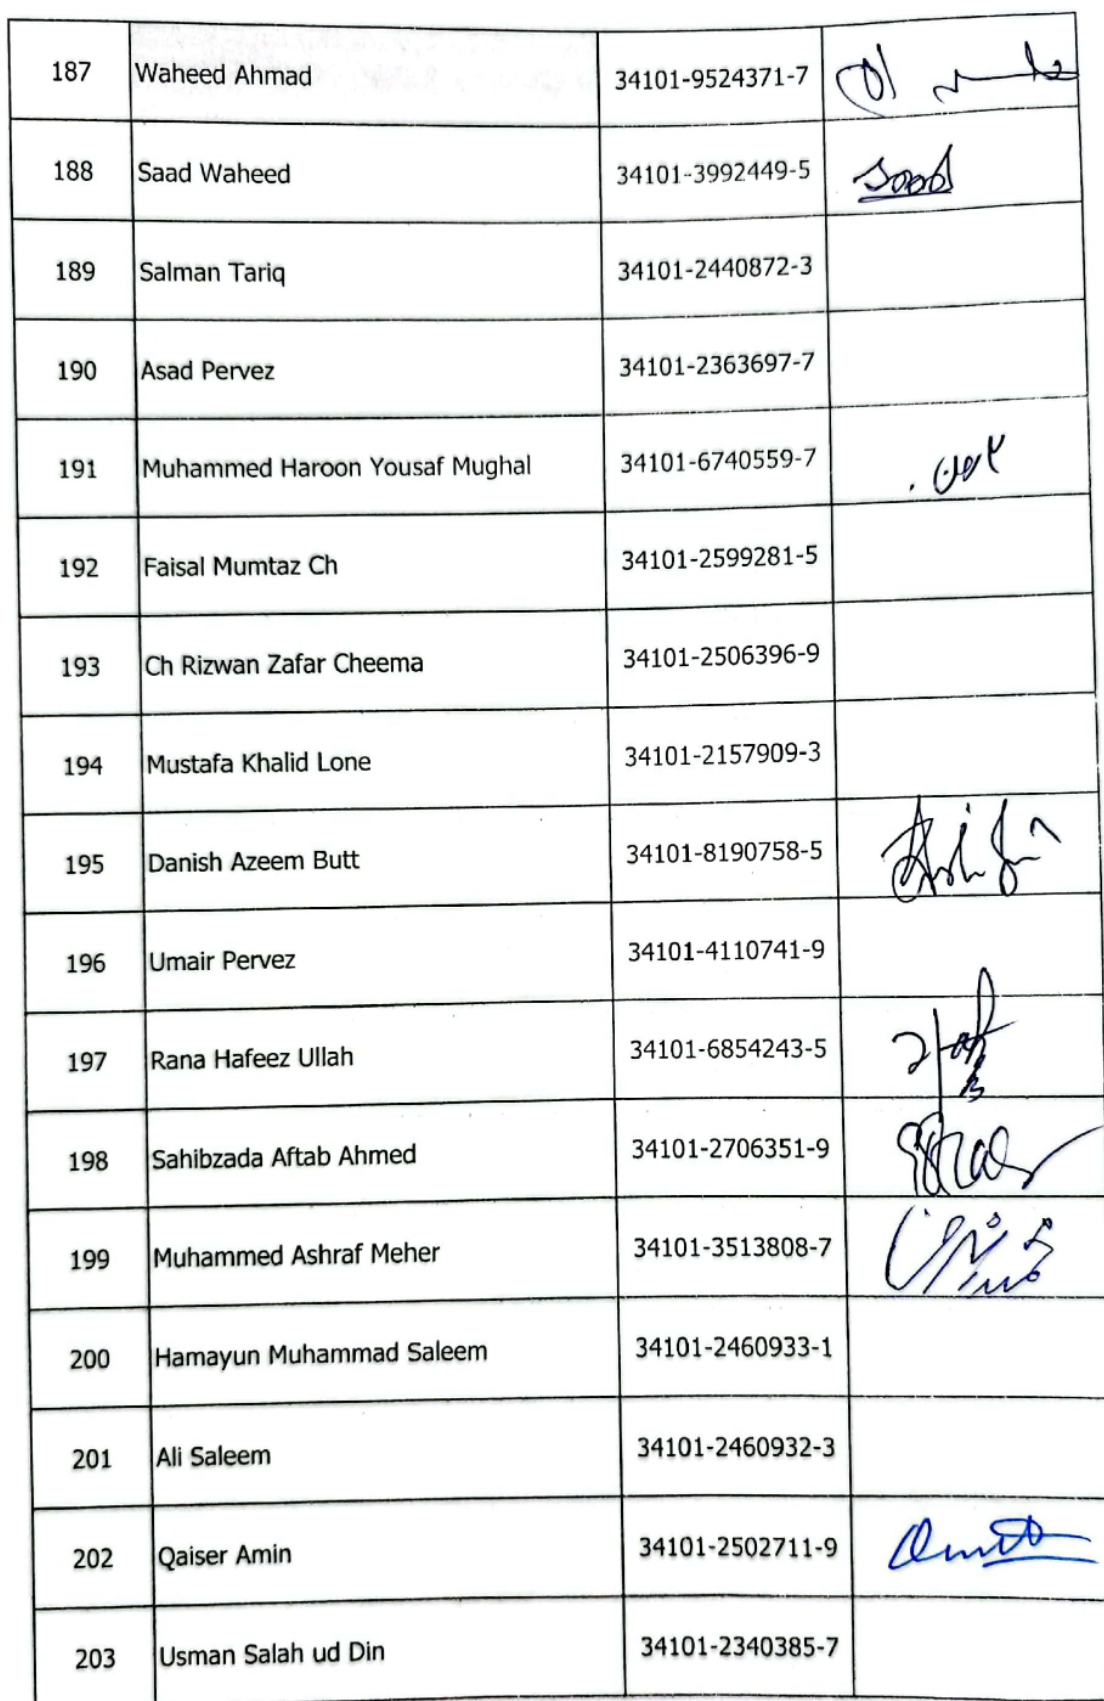 187 Waheed Ahmad 34101-9524371-7
188 Saad Waheed 34101-3992449-5 Saad
189 Salman Tariq 34101-2440872-3
190 Asad Pervez 34101-2363697-7
191 Muhammed Haroon Yousaf Mughal 34101-6740559-7
192 Faisal Mumtaz Ch 34101-2599281-5
193 Ch Rizwan Zafar Cheema 34101-2506396-9
194 Mustafa Khalid Lone 34101-2157909-3
195 Danish Azeem Butt 34101-8190758-5
196 Umair Pervez 34101-4110741-9
197 Rana Hafeez Ullah 34101-6854243-5
198 Sahibzada Aftab Ahmed 34101-2706351-9
199 Muhammed Ashraf Meher 34101-3513808-7
200 Hamayun Muhammad Saleem 34101-2460933-1
201 Ali Saleem 34101-2460932-3
202 Qaiser Amin 34101-2502711-9
203 Usman Salah ud Din 34101-2340385-7